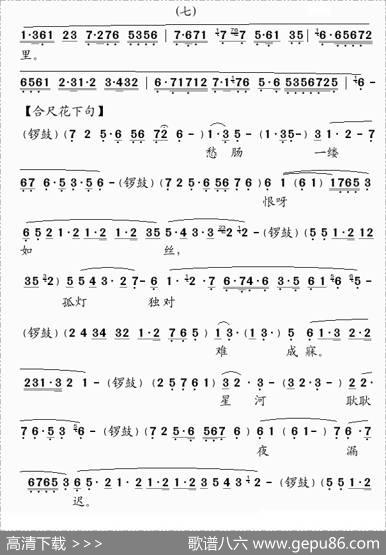 (七)
1·361 23 7·276 5356 | 7·671 7 7 5·61 35 | 6·65672
里。
6561 2·31·2 3·432 | 6·71712 7·176 5·6 5356725 | 6 -
【合尺花下句】
(锣鼓) (7 2 5·6 56 72 6 -) 1·3 5 - (1·35-) 3 1·2 - 7
愁 肠 一缕
67 6·5 3·5 6 - (锣鼓) (7 2 5·6 56 76) 6 1 (61) 1765 3
恨呀
6 5 2 1·2 1·2 1·2 35 5·4 3·3 2 - (锣鼓) (5 5 1·2 12
如 丝,
35 2) 5 5 4 3·2 7 - 6 1·2·7 6·74·6 3·5 6 1 5 -
孤灯 独对
(锣鼓) (2 4 34 32 1·2 7 6 5) 1 3· (1 3·) 5 6 1·3 2·2
难 成寐。
231·3 2 1 - (锣鼓) (2 5 7 6 1) 3 2·3 - (3 2·3 -) 2 2·
星 河 耿耿
7 6·5 3 6 - (锣鼓) (7 2 5·6 567 6) 6 1 (6 1 -) 7 6·7
夜 漏
6765 3 6 5·2 1·2 1·2 1·2 3 5 4 3·2 - (锣鼓) (5 5 1·2
迟。
高清下载 >>> 歌谱八六 www.gepu86.com